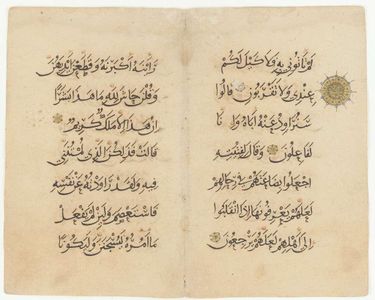 لم تأتوني به فلا كيل لكم
عندي ولا تقربون قالوا
سنراود عنه أباه وإنا
لفاعلون وقال لفتيته
اجعلوا بضاعتهم في رحالهم
لعلهم يعرفونها إذا انقلبوا
إلى أهلهم لعلهم يرجعون
رأينه أكبرنه وقطعن أيديهن
وقلن حاش لله ما هذا بشرا
إن هذا إلا ملك كريم
قالت فذلكن الذي لمتنني
فيه ولقد راودته عن نفسه
فاستعصم ولئن لم يفعل
ما آمره ليسجنن وليكونا